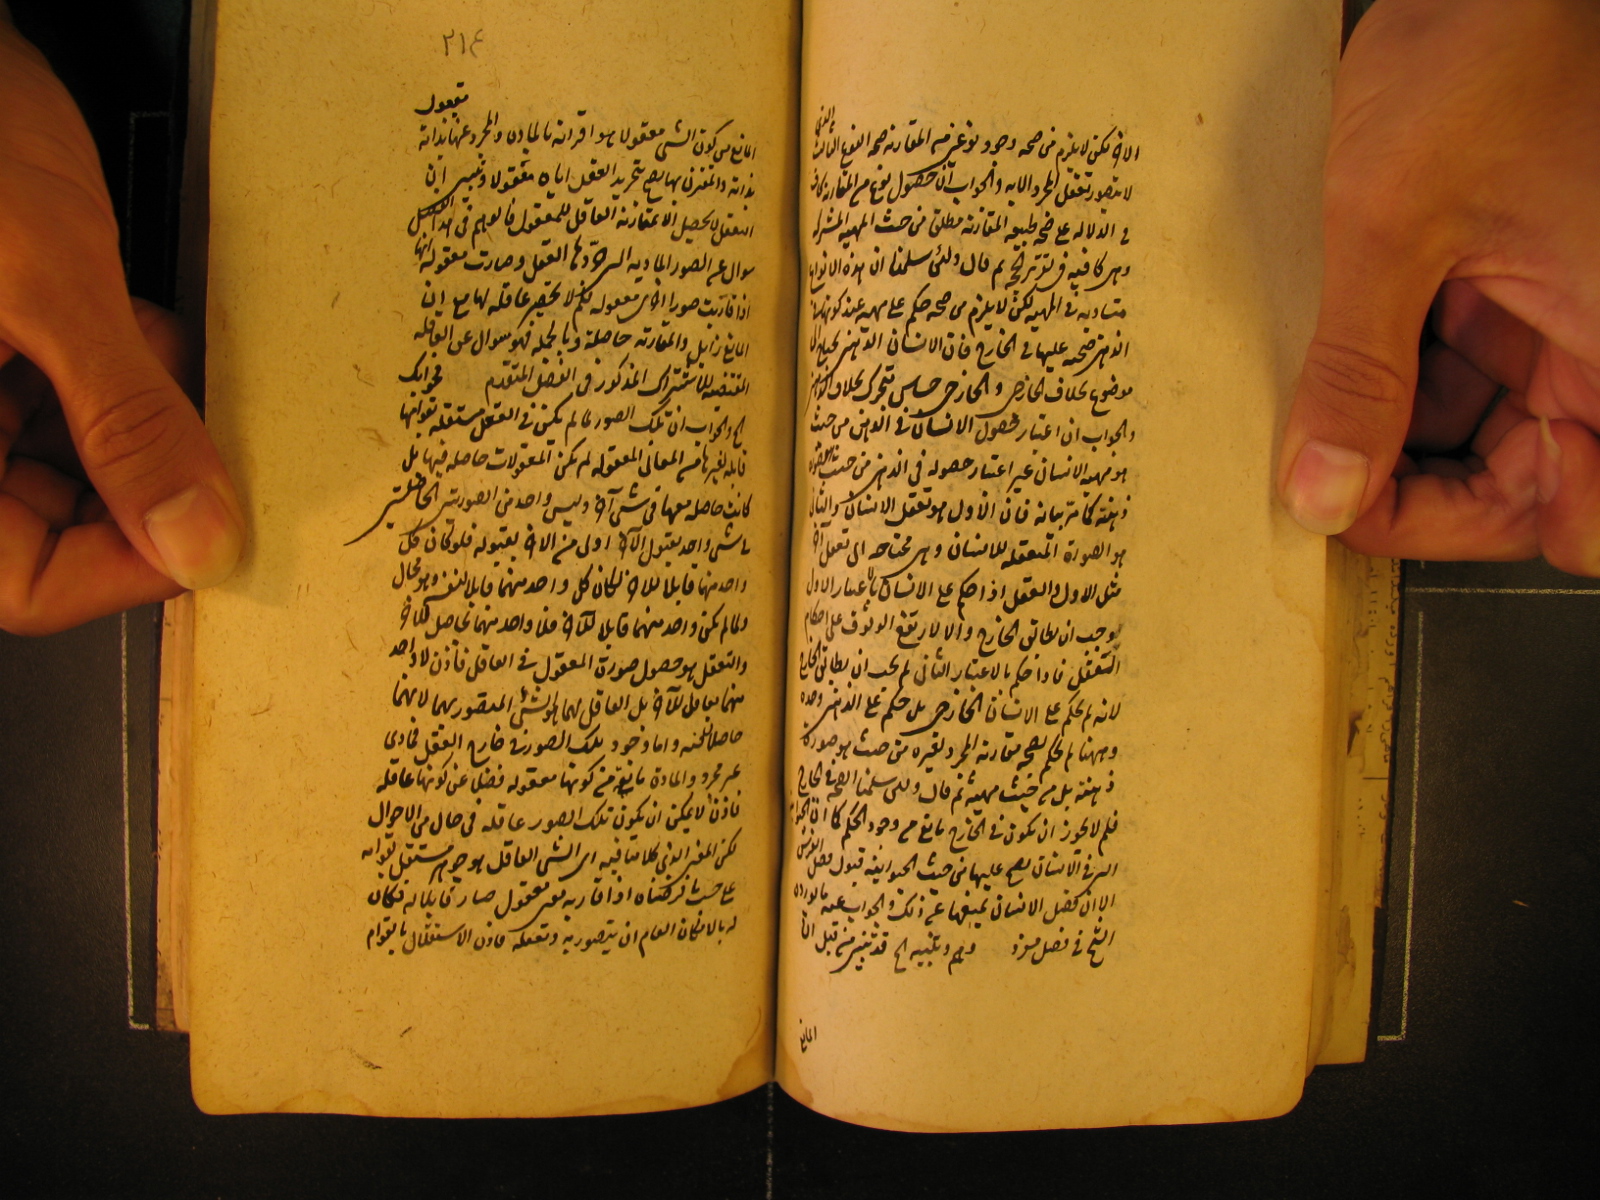 الذى
الاخر لكن لا يلزم من صحه وجود نوعين من المقارنه صحه النوع الثالث
لا يتصور تعقل المجرد الا به والجواب ان حصول نوع من المقارنه كاف
فى الدلاله على صحه طبيعه المقارنة مطلقا من حيث المهيه المشتركه
وهى كافيه فى تقرير الحجه ثم قال ولئن سلمنا ان هذه الانواع
متساويه فى المهيه لكن لا يلزم من صحه حكم على مهيه عند كونها
الذهن صحته عليها فى الخارج فان الانسان الذهنى يحتاج الى
موضوع بخلاف الخارجى والخارجى حساس متحرك بخلاف الذهنى
والجواب ان اعتبار حصول الانسان فى الذهن من حيث
هو مهيه الانسان غير اعتبار حصوله فى الذهن من حيث
ذهنه كما مر بيانه فان الاول هو تعقل الانسان والثانى
هو الصورة المتعقله للانسان وهى محتاجه الى تعقل آخر
مثل الاول والعقل اذا حكم على الانسان بالاعتبار الاول
يوجب ان يطابق الخارج والا لارتفع الوثوق على احكام
التعقل فاذا حكم بالاعتبار الثانى لم يجب ان يطابق الخارج
لانه لم يحكم على الانسان الخارجى بل حكم على الذهنى وحده
وههنا لم يحكم بصحه مقارنة المجرد لغيره من حيث هو صورة
ذهنه بل من حيث مهيه ثم قال ولئن سلمنا الصحه فى الخارج
فلم لا يجوز ان يكون فى الخارج مانع من وجود الحكم كما ان
التى فى الانسان يصح عليها من حيث الحيوانيه قبول فصل الفرس
الا ان فصل الانسان يمنعها عن ذلك والجواب عنه ما يورده
الشيخ فى فصل مفرد وهم وتنبيه الخ قد تبين من قبل ان
المانع
٢١٤
المانع من كون الشى معقولا هو اقترانه بالمادة والمجرد عنها بذاته معقول
بذاته والمقترن بها يصح بتجريد العقل اياه معقولا وتبين ان
التعقل لا يحصل الا بمقارنة العاقل للمعقول فالوهم فى هذا الفصل
سوال عن الصور الماديه التى جردها العقل وصارت معقوله انها
اذا قارنت صورا اخرى معقوله لم لا يصير عاقله لها مع ان
المانع زايل والمقارنة حاصله وبالجمله فهو سوال عن العاقله
المقتضيه للاشتراك المذكور فى الفصل المتقدم فجوابك
الخ والجواب ان تلك الصور لما لم يكن فى العقل مستقله بقوامها
قابله لغيرها من المعانى المعقوله لم يكن المعقولات حاصله فيها بل
كانت حاصله معها فى شى آخر وليس واحد من الصورتين الحاصلتين
فى شى واحد بقبول الآخر اولى من الاخر بقبوله فلو كان كل
واحد منهما قابلا للآخر لكان كل واحد منهما قابلا لنفسه وهو محال
ولما لم يكن واحد منهما قابلا للآخر فلا واحد منهما بحاصل للآخر
والتعقل هو حصول صورة المعقول فى العاقل فاذن لا واحد
منهما بعاقل للآخر بل العاقل لهما هو الشى المتصور بهما لانهما
حاصلان فيه واما وجود تلك الصور فى خارج العقل فمادى
غير مجرد والمادة مانعة من كونها معقوله فضلا عن كونها عاقله
فاذن لا يمكن ان يكون تلك الصور عاقله فى حال من الاحوال
لكن المعنى الذى كلامنا فيه اى الشى العاقل هو جوهر مستقل بقوامه
على حسب ما فرضناه اذا قارنه معنى معقول صار قابلا له فكان
له بالامكان العام ان يتصور به وتعقله فاذن الاستقلال بالقوام